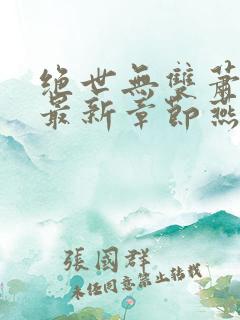 絕世無雙蕭
最新章節燕
張國群
未经同意禁止转载